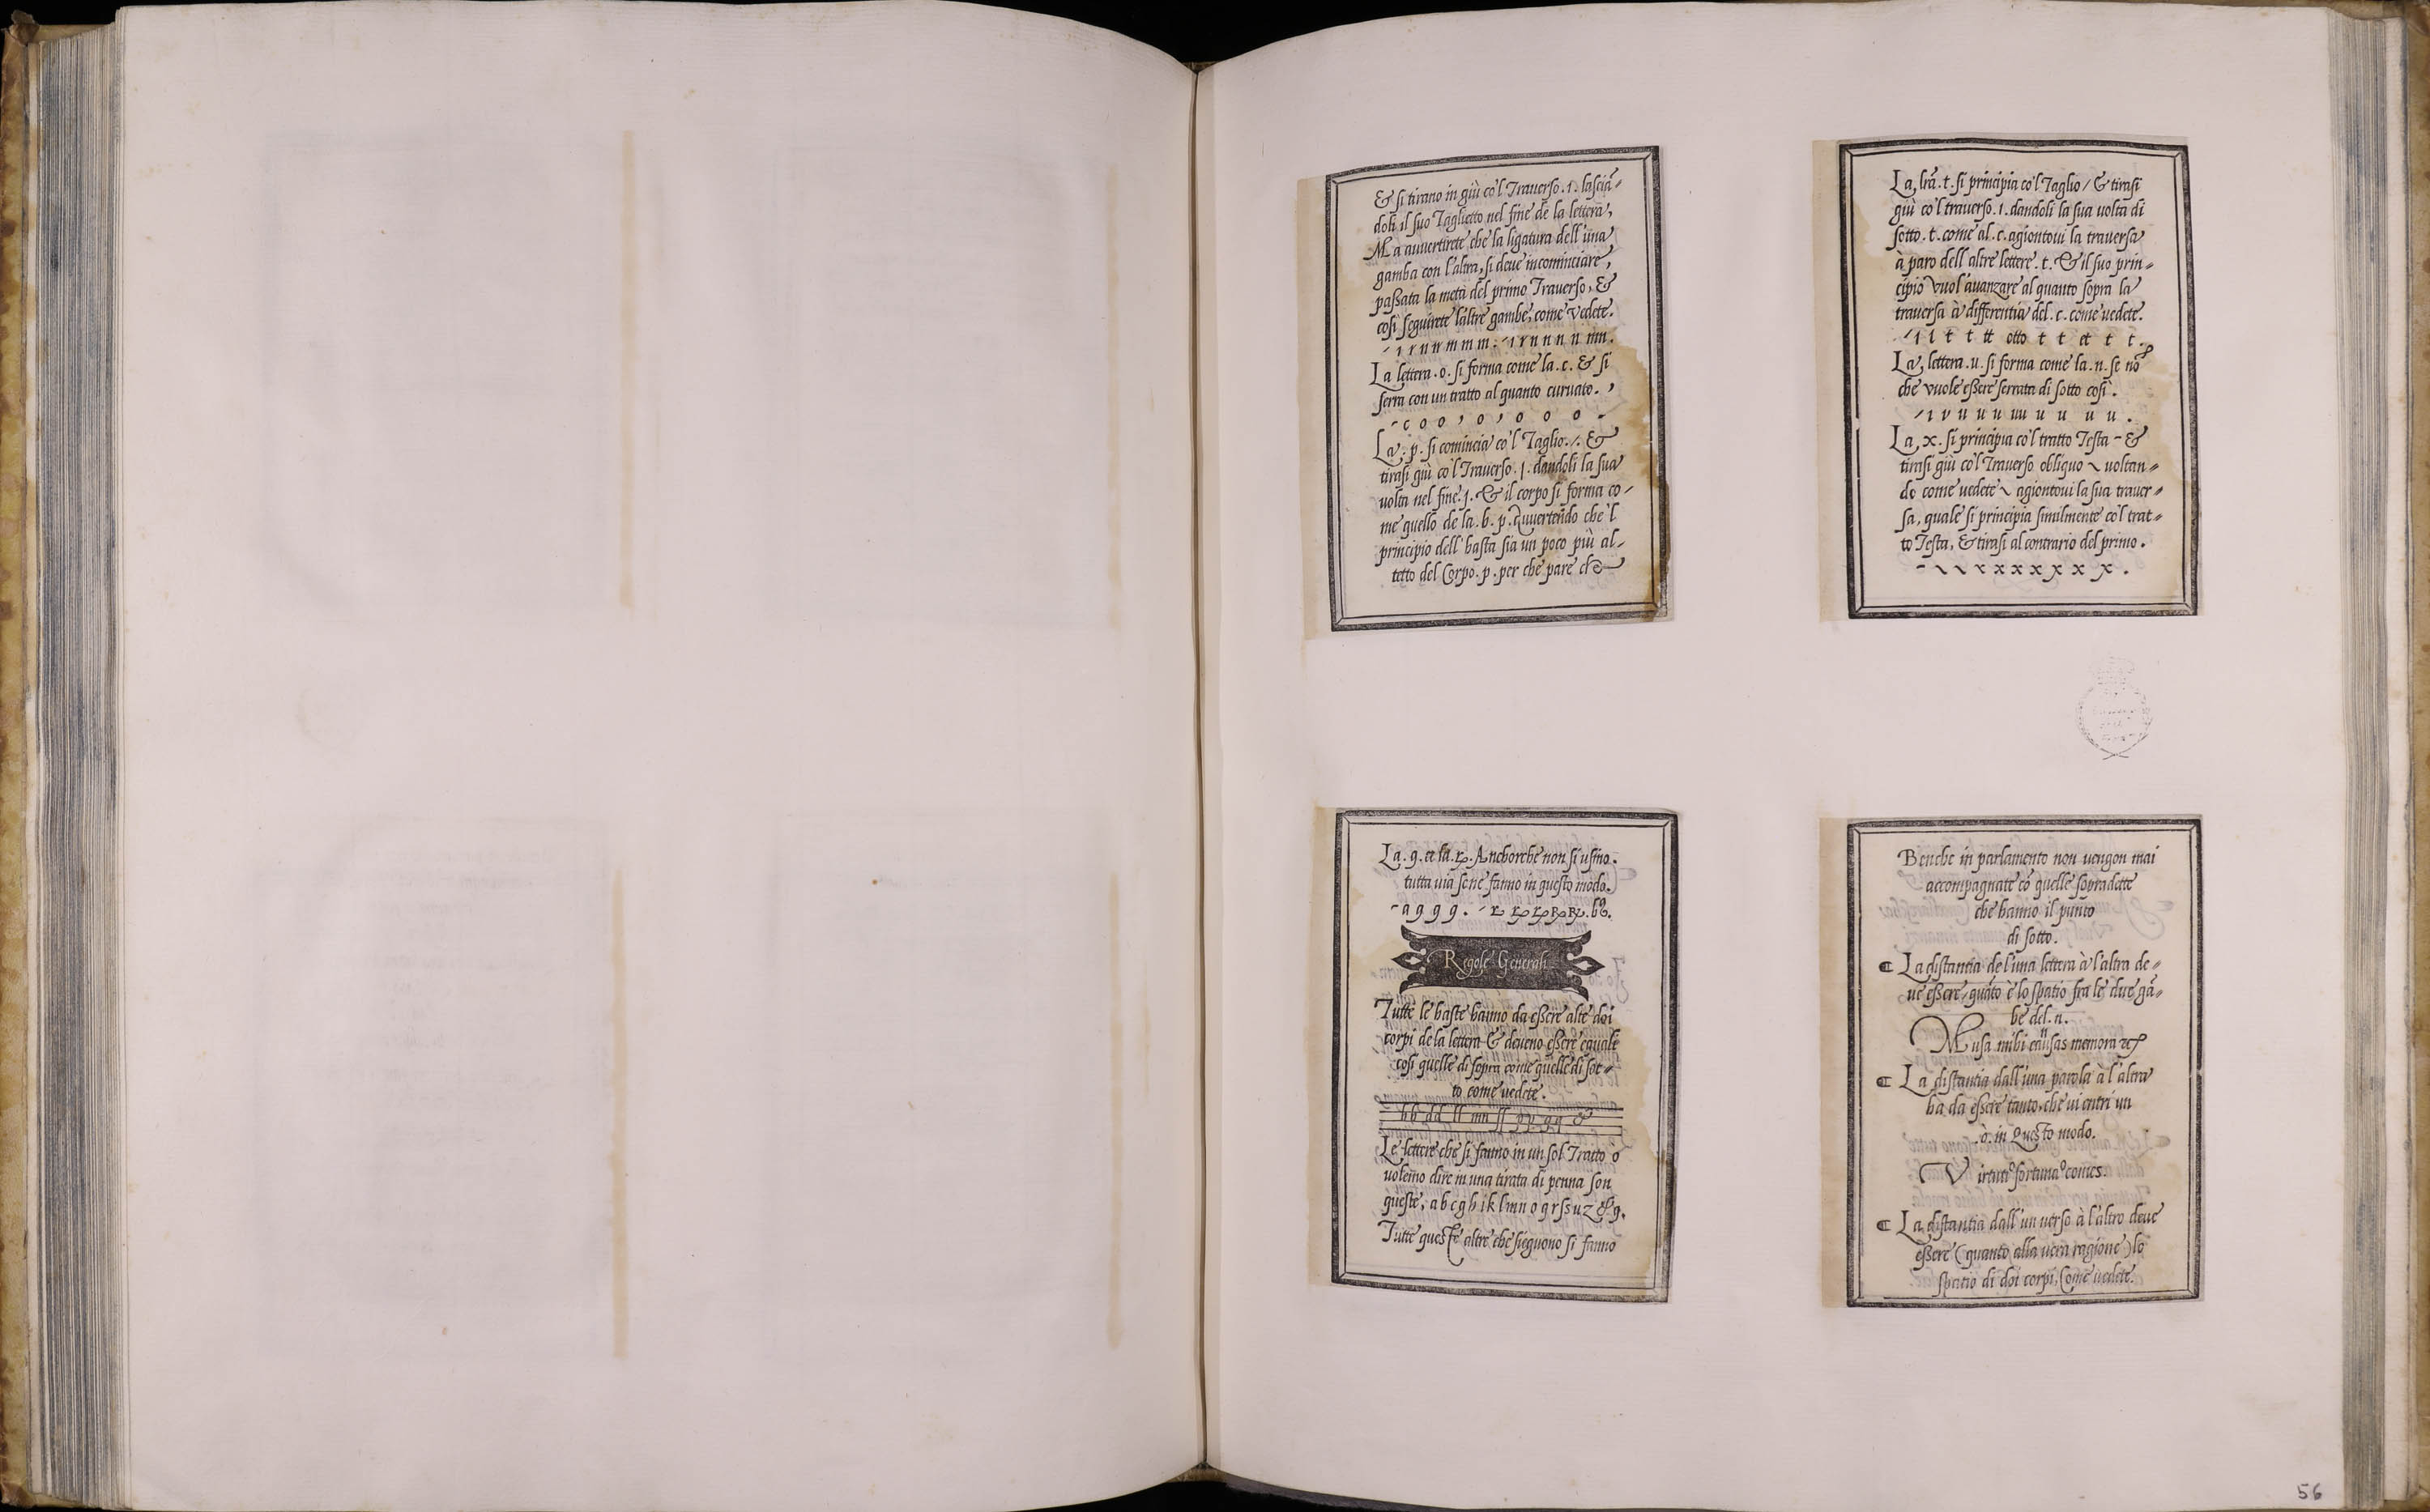 & si tirano in giù co'l Trauerso .ı. lasciã-
doli il suo Taglietto nel fine de la lettera,
Ma auuertirete che la ligatura dell'una
gamba con l'altra, si deue incominciare,
passata la metà del primo Trauerso, &
cosi seguirete l'altre gambe, come vedete.
La lettera .o. si forma come la .c. & si
serra con un tratto al quanto curuato.
- c o o , o , o o o -
La .p. si comincia co'l Taglio ./. &
tirasi giù co'l Trauerso .ȷ. dandoli la sua
volta nel fine .ȷ. & il corpo si forma co-
me quello de la .b. p. Auuertendo che'l
principio dell'hasta sia un poco più al-
tetto del Corpo .p. per che pare che
La, lrã .t. si principia co'l Taglio / & tirasi
giù co'l trauerso .ı. dandoli la sua uolta di
sotto .t. come al .c. agiontoui la trauersa
à paro dell'altre lettere .t. & il suo prin-
cipio vuol'auanzare al quanto sopra la
trauersa à differentia del .c. come uedete.
- ı l t t tt otto t t ct t t .
La, lettera .u. si forma come la .n. se nõ
che vuole essere serrata di sotto cosi .
La, x. si principia co'l tratto Testa - &
tirasi giù co'l Trauerso obliquo \ voltan-
do come uedete \ agiontoui la sua trauer-
sa, quale si principia similmente co'l trat-
to Testa, & tirasi al contrario del primo .
- \ \ x x x x x x x .
La .9. et la .ꝝ. Anchorche non si usino.
tutta uia sene fanno in questo modo.
Regole Generali
Tutte le haste hanno da essere alte doi
corpi de la lettera & deueno essere equale
cosi quelle di sopra come quelle di sot-
to come uedete .
hb dd ll mn ſſ pp qq &
Le lettere che si fanno in un sol Tratto ò
uolemo dire in una tirata di penna son
queste, a b c g h i k l m n o q r ſ s u z & 9.
Tutte queste altre che sieguono si fanno
Benche in parlamento non uengon mai
accompagnate cõ quelle sopradette
che hanno il punto
di sotto.
La distantia de l'una lettera à l'altra de-
ue essere, quãto è lo spatio fra le due gã-
be del .n.
Musa mihi caussas memora &c
La distantia dall'una parola à l'altra
ha da essere tanto, che ui entri un
.ò. in Questo modo.
Virtuti o fortuna o comes.
La distantia dall'un uerso à l'altro deue
essere (quanto alla uera ragione) lo
spatio di doi corpi, Come uedete.
56